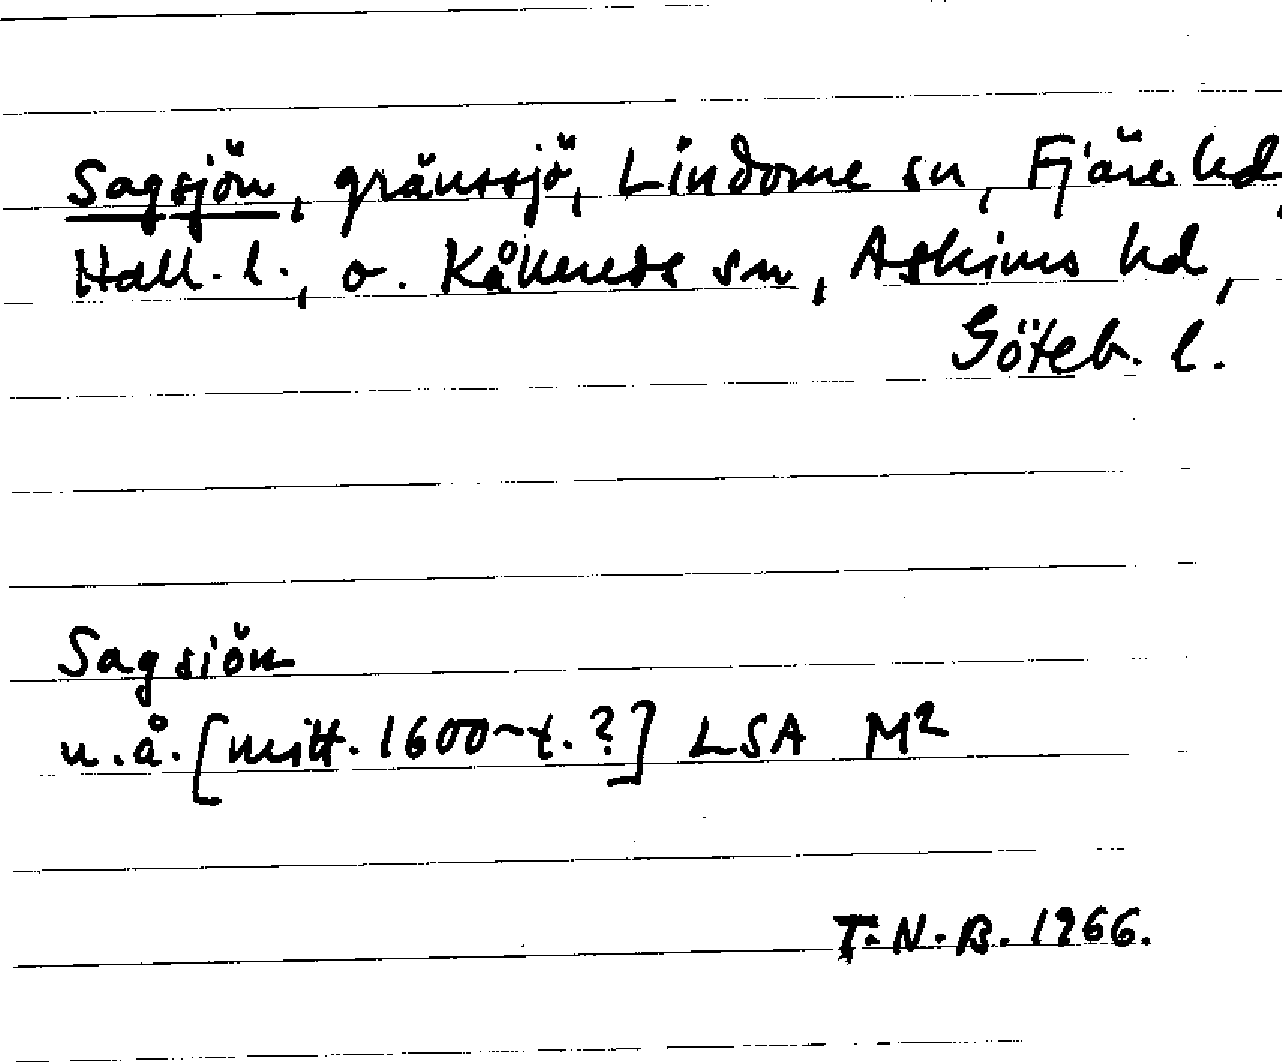 Sagsjön, gränssjö, Lindome sn, Fjäre hd,
Hall. l., o. Kållereds sn, Askims hd,
Göteb. l.
Sagsiön
u.å. [mitt. 1600-t. ?] LSA M²
T.N.B. 1966.